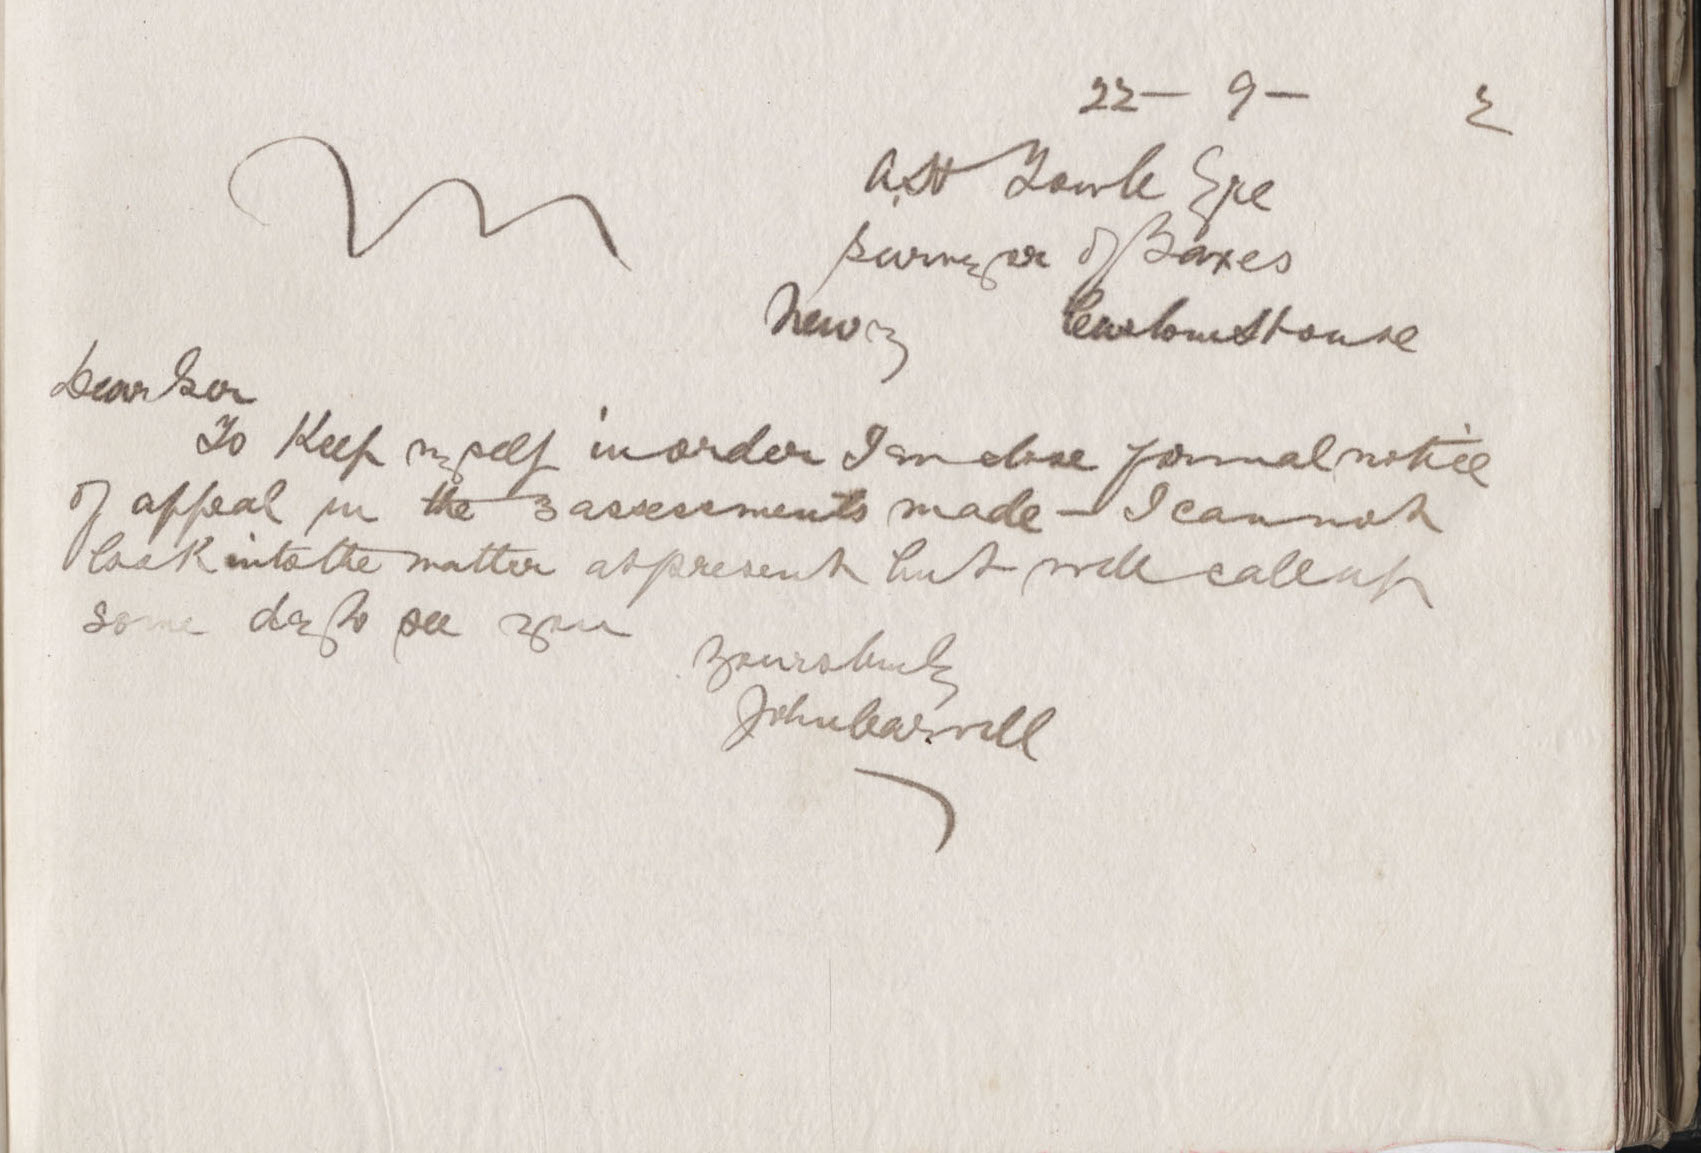 22 – 9 – 2
A. H Fowle Esqe
Surveyor of Taxes
Newry Customs House
Dear Sir
To Keep myself in order I enclose formal notice
of appeal in the 3 assessments made – I cannot
look into the matter at present but will call up
some day to see you
yours truly
John Carvill